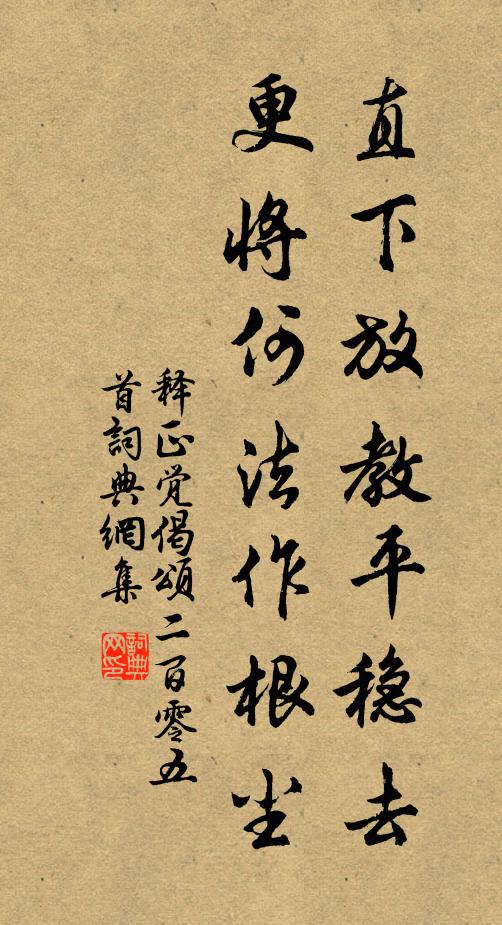 直下放教平稳去
更将何法作根尘
释正觉偈頌二百零五
首詞典網集
詞典网印